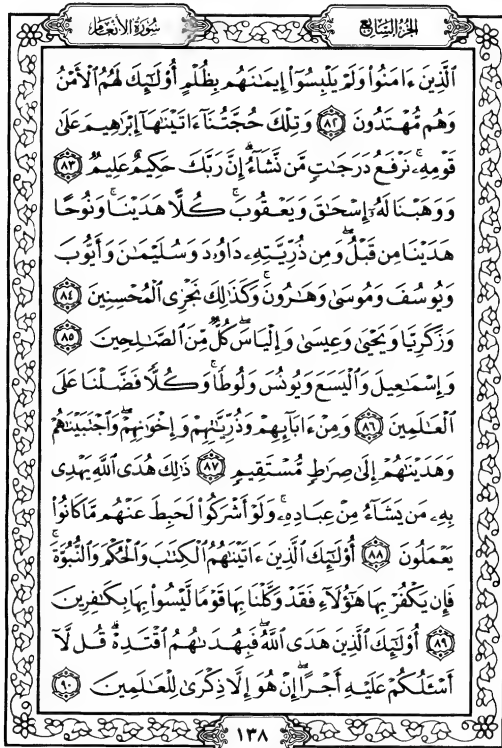 سُورَةُ الأَنْعَامِ
الجُزْءُ السَّابِعُ
الَّذِينَ ءَامَنُوا۟ وَلَمْ يَلْبِسُوٓا۟ إِيمَـٰنَهُم بِظُلْمٍ أُو۟لَـٰٓئِكَ لَهُمُ الْأَمْنُ
وَهُم مُّهْتَدُونَ ﴿٨٢﴾ وَتِلْكَ حُجَّتُنَآ ءَاتَيْنَـٰهَآ إِبْرَٰهِيمَ عَلَىٰ
قَوْمِهِۦ ۚ نَرْفَعُ دَرَجَـٰتٍ مَّن نَّشَآءُ ۗ إِنَّ رَبَّكَ حَكِيمٌ عَلِيمٌ ﴿٨٣﴾
وَوَهَبْنَا لَهُۥٓ إِسْحَـٰقَ وَيَعْقُوبَ ۚ كُلًّا هَدَيْنَا ۚ وَنُوحًا
هَدَيْنَا مِن قَبْلُ ۖ وَمِن ذُرِّيَّتِهِۦ دَاوُۥدَ وَسُلَيْمَـٰنَ وَأَيُّوبَ
وَيُوسُفَ وَمُوسَىٰ وَهَـٰرُونَ ۚ وَكَذَٰلِكَ نَجْزِى الْمُحْسِنِينَ ﴿٨٤﴾
وَزَكَرِيَّا وَيَحْيَىٰ وَعِيسَىٰ وَإِلْيَاسَ ۖ كُلٌّ مِّنَ الصَّـٰلِحِينَ ﴿٨٥﴾
وَإِسْمَـٰعِيلَ وَالْيَسَعَ وَيُونُسَ وَلُوطًا ۚ وَكُلًّا فَضَّلْنَا عَلَى
الْعَـٰلَمِينَ ﴿٨٦﴾ وَمِنْ ءَابَآئِهِمْ وَذُرِّيَّـٰتِهِمْ وَإِخْوَٰنِهِمْ ۖ وَاجْتَبَيْنَـٰهُمْ
وَهَدَيْنَـٰهُمْ إِلَىٰ صِرَٰطٍ مُّسْتَقِيمٍ ﴿٨٧﴾ ذَٰلِكَ هُدَى اللَّهِ يَهْدِى
بِهِۦ مَن يَشَآءُ مِنْ عِبَادِهِۦ ۚ وَلَوْ أَشْرَكُوا۟ لَحَبِطَ عَنْهُم مَّا كَانُوا۟
يَعْمَلُونَ ﴿٨٨﴾ أُو۟لَـٰٓئِكَ الَّذِينَ ءَاتَيْنَـٰهُمُ الْكِتَـٰبَ وَالْحُكْمَ وَالنُّبُوَّةَ ۚ
فَإِن يَكْفُرْ بِهَا هَـٰٓؤُلَآءِ فَقَدْ وَكَّلْنَا بِهَا قَوْمًا لَّيْسُوا۟ بِهَا بِكَـٰفِرِينَ
﴿٨٩﴾ أُو۟لَـٰٓئِكَ الَّذِينَ هَدَى اللَّهُ ۖ فَبِهُدَىٰهُمُ اقْتَدِهْ ۗ قُل لَّآ
أَسْـَٔلُكُمْ عَلَيْهِ أَجْرًا ۖ إِنْ هُوَ إِلَّا ذِكْرَىٰ لِلْعَـٰلَمِينَ ﴿٩٠﴾
١٣٨